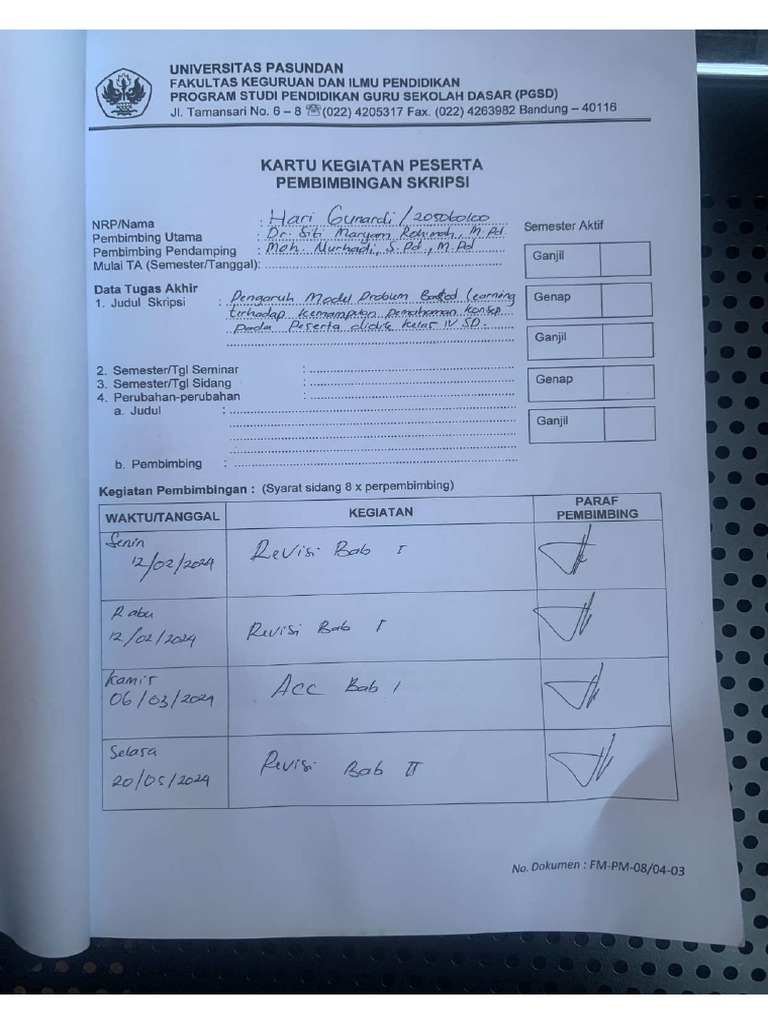 UNIVERSITAS PASUNDAN
FAKULTAS KEGURUAN DAN ILMU PENDIDIKAN
PROGRAM STUDI PENDIDIKAN GURU SEKOLAH DASAR (PGSD)
Jl. Tamansari No. 6 – 8 ☏(022) 4205317 Fax. (022) 4263982 Bandung – 40116
KARTU KEGIATAN PESERTA
PEMBIMBINGAN SKRIPSI
NRP/Nama : Hari Gunardi / 205060100
Pembimbing Utama : Dr. Siti Maryam Rohimah, M.Pd
Pembimbing Pendamping : Moh. Nurhadi, S.Pd., M.Pd
Mulai TA (Semester/Tanggal):
Semester Aktif
Ganjil
Genap
Ganjil
Genap
Ganjil
Data Tugas Akhir
1. Judul Skripsi : Pengaruh Model Problem Learning
terhadap Kemampuan pemahaman Konsep
pada Peserta didik Kelas IV SD.
2. Semester/Tgl Seminar :
3. Semester/Tgl Sidang :
4. Perubahan-perubahan
a. Judul :
b. Pembimbing :
Kegiatan Pembimbingan : (Syarat sidang 8 x perpembimbing)
WAKTU/TANGGAL KEGIATAN PARAF PEMBIMBING
Senin
12/02/2024 Revisi Bab I
Rabu
12/02/2024 Revisi Bab I
Kamis
06/03/2024 Acc Bab I
Selasa
20/05/2024 Revisi Bab II
No. Dokumen : FM-PM-08/04-03